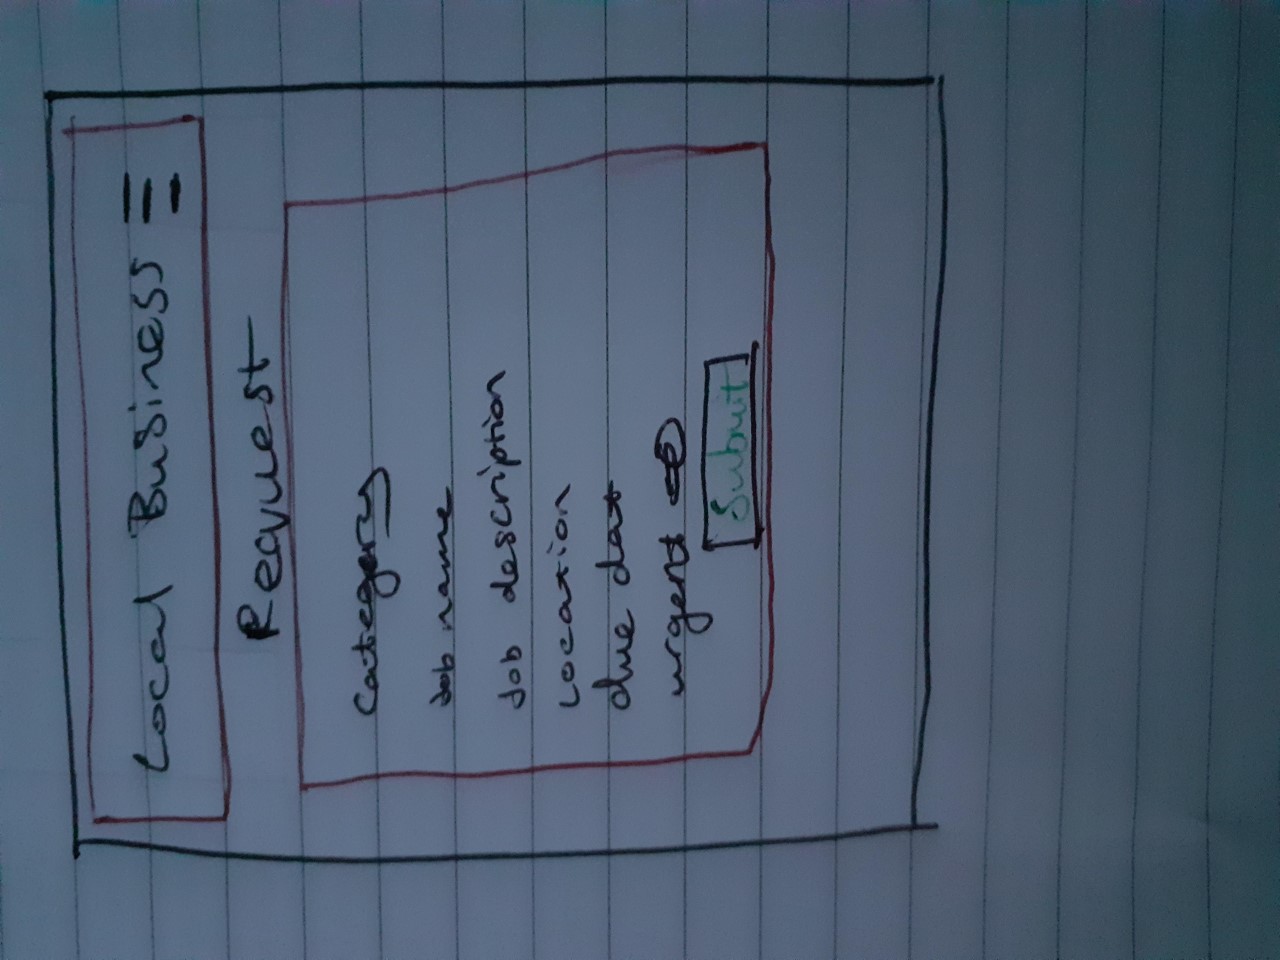 Local Business
Request
Category
Job name
Job description
Location
due dat
urgent
Submit